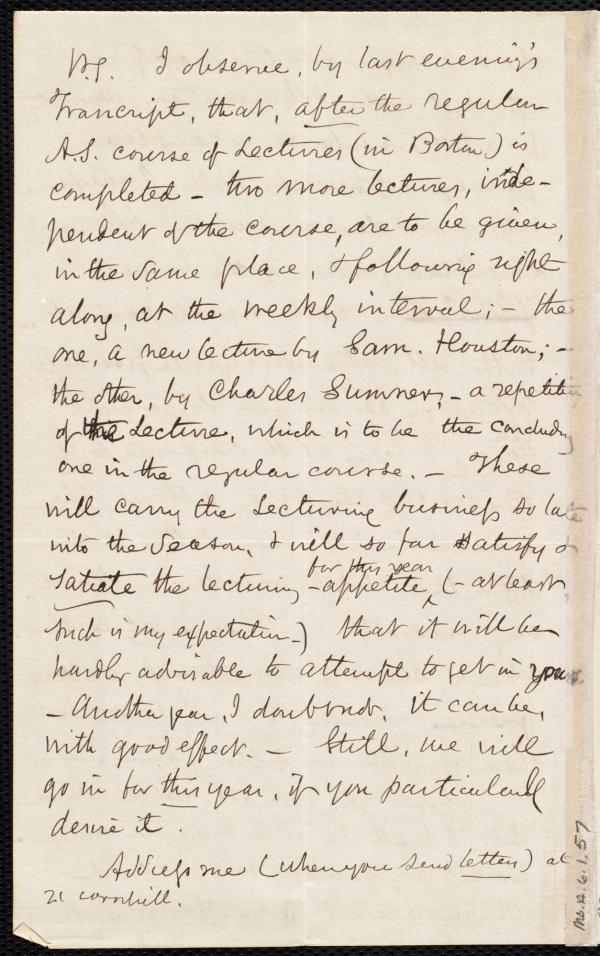 P.S. I observe, by last evening's
Transcript, that, after the regular
A.S. course of Lectures (in Boston) is
completed – two more lectures, inde-
pendent of the course, are to be given,
in the same place, & following right
along, at the weekly interval; – the
one, a new lecture by Sam. Houston; –
the other, by Charles Sumner, – a repetition
of the Lecture, which is to be the concluding
one in the regular course. – These
will carry the Lecturing business so late
into the Season, & will so far satisfy &
satiate the lecturing – appetite, (– at least,
for this year
such is my expectation –) that it will be
hardly advisable to attempt to get in yours.
– Another year, I doubt not, it can be,
with good effect. – Still, we will
go in for this year, if you particularly
desire it.
Address me (when you send letters) at
21 Cornhill.
Ms.A.6.1.57